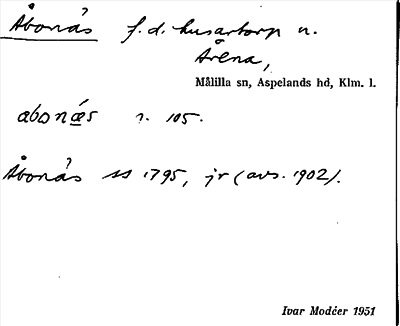 Åbonäs f.d. husartorp u.
Årena,
Målilla sn, Aspelands hd, Klm. l.
abonäs r. 105.
Åbonäs ss 1795, jr (avs. 1902).
Ivar Modéer 1951